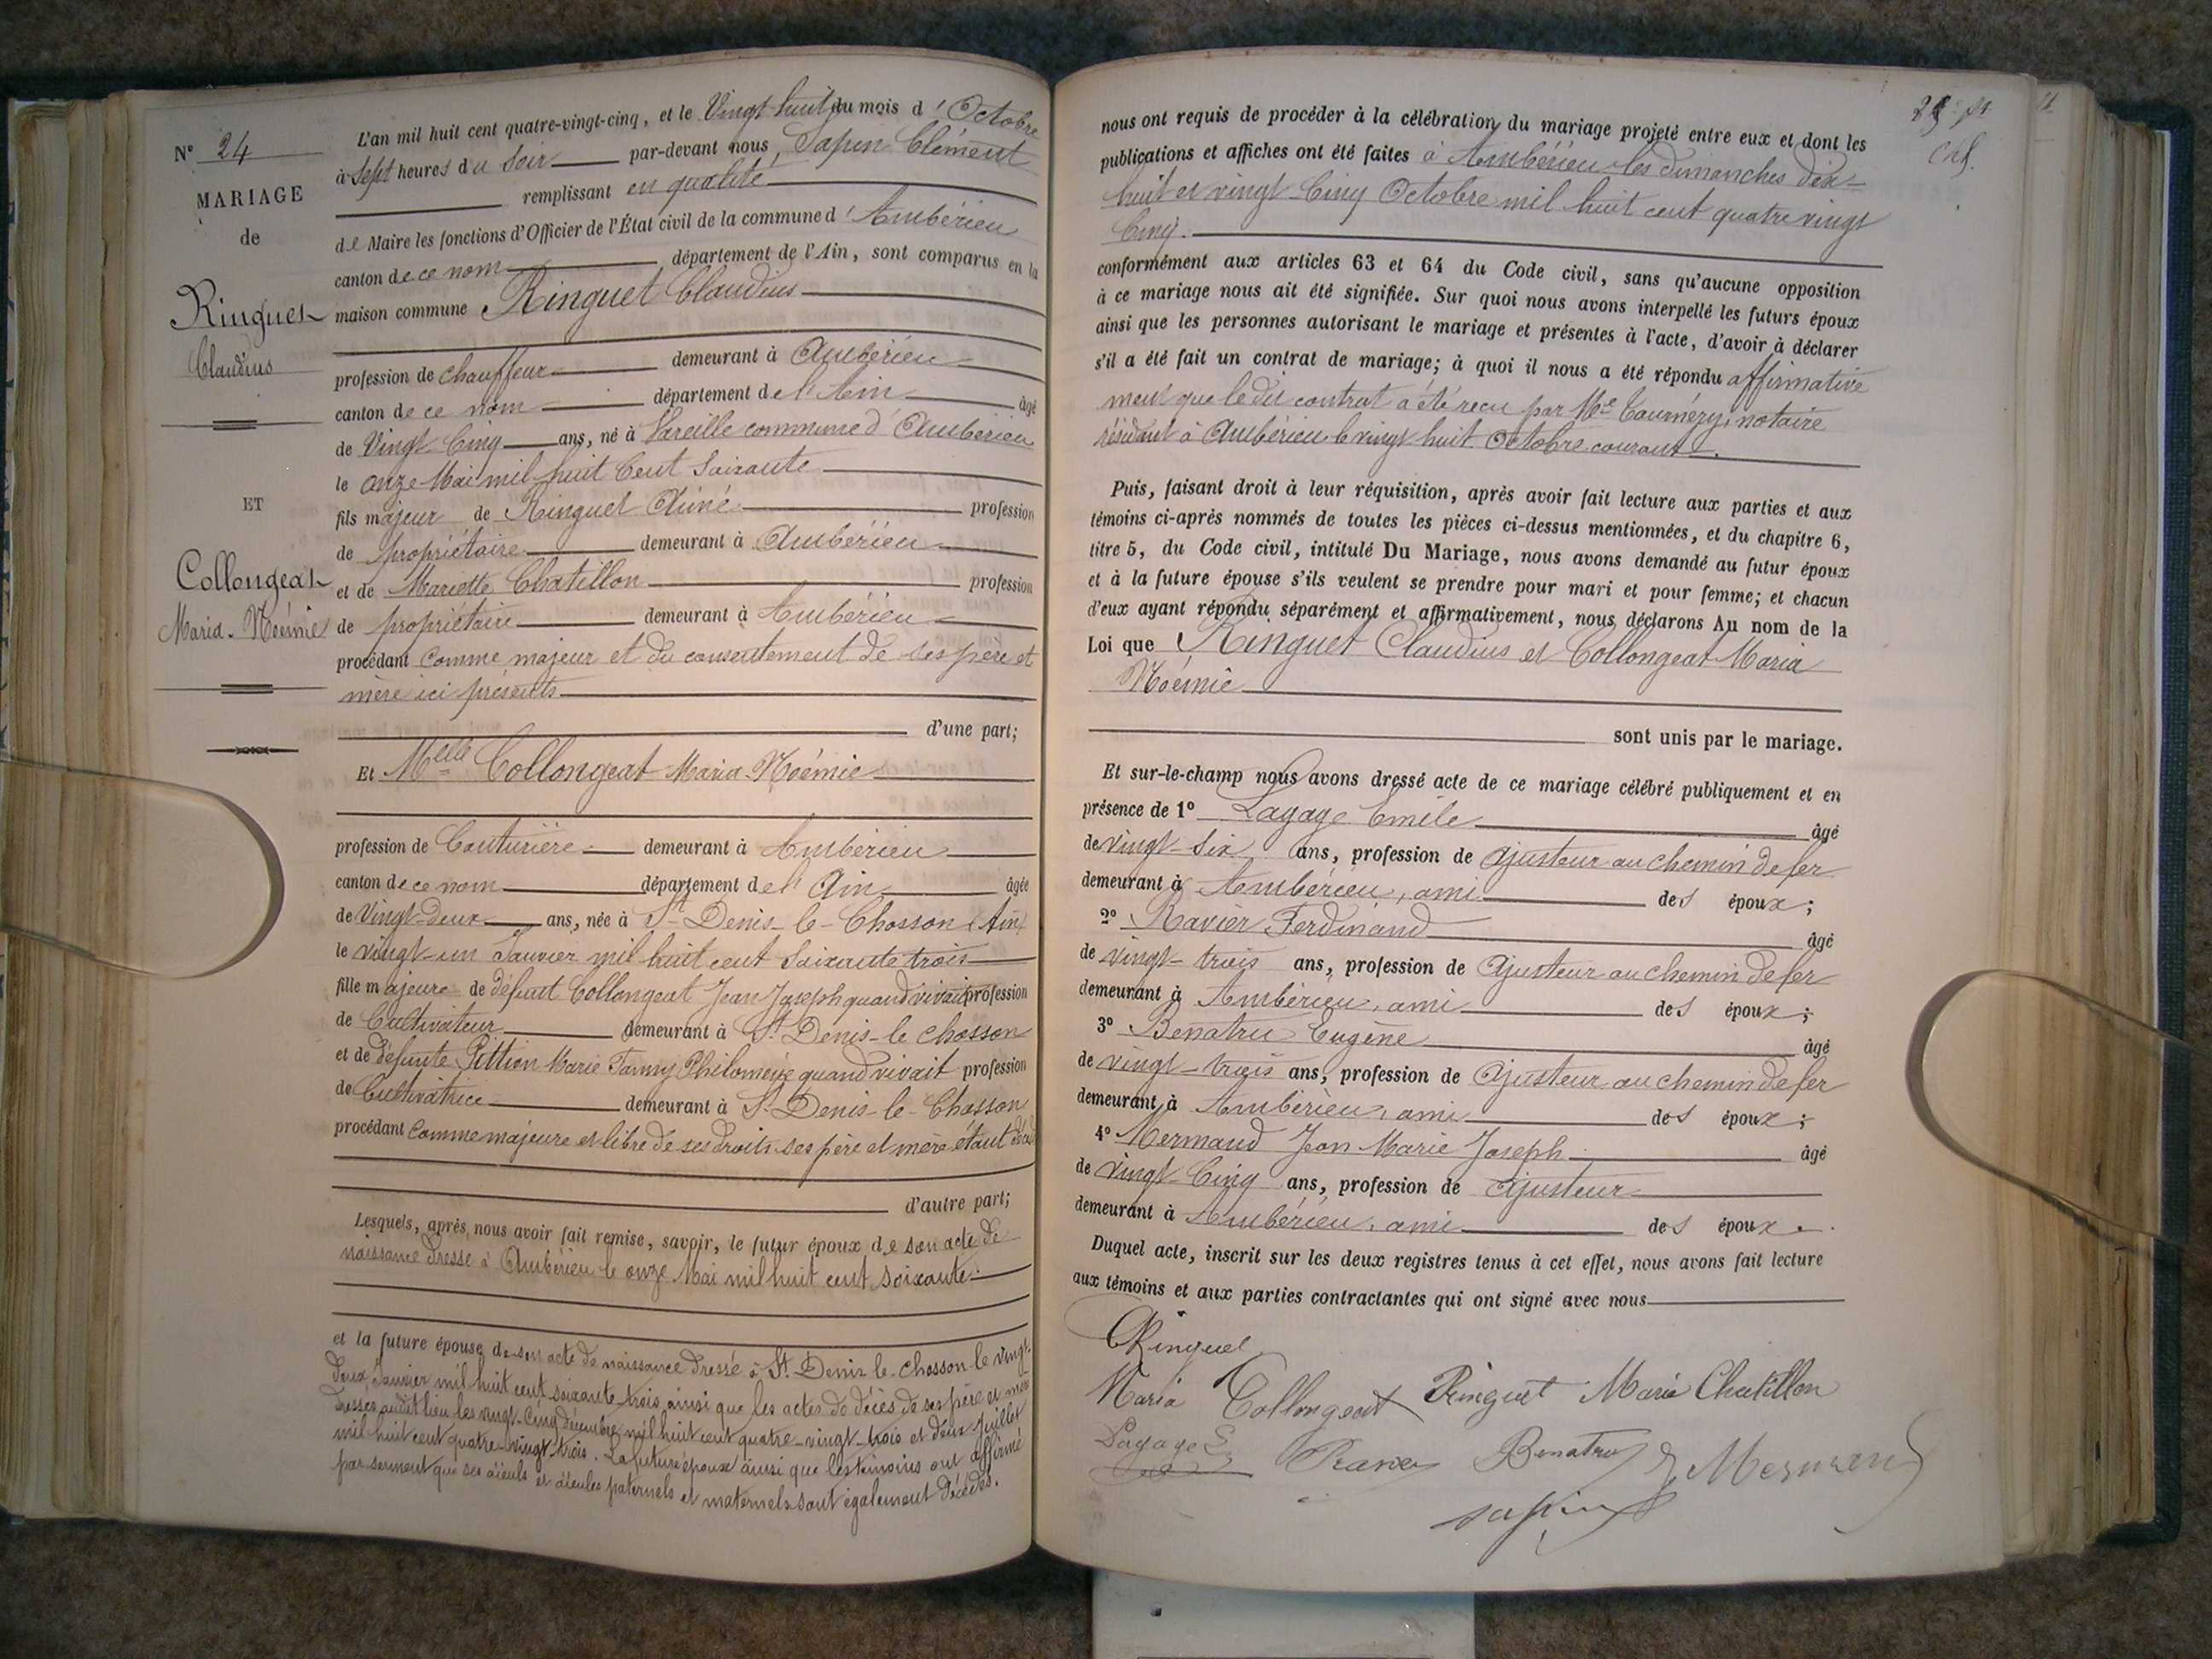 N° 24
MARIAGE
de
Ringuet
Claudius
ET
Collongeat
Maria-Noémie
L'an mil huit cent quatre-vingt-cinq, et le Vingt huit du mois d'Octobre
à Sept heures du Soir par-devant nous, Sapin Clément
remplissant en qualité
de Maire les fonctions d'Officier de l'État civil de la commune d'Ambérieu
canton de ce nom département de l'Ain, sont comparus en la
maison commune Ringuet Claudius
profession de chauffeur demeurant à Ambérieu
canton de ce nom département de l'Ain âgé
de Vingt Cinq ans, né à Vareille commune d'Ambérieu
le onze Mai mil huit Cent Soixante
fils majeur de Ringuet Aimé profession
de propriétaire demeurant à Ambérieu
et de Mariette Chatillon profession
de propriétaire demeurant à Ambérieu
procédant comme majeur et du consentement de ses père et
mère ici présents
d'une part;
Et Melle Collongeat Maria-Noémie
profession de Couturière demeurant à Ambérieu
canton de ce nom département de l'Ain âgée
de Vingt-deux ans, née à St Denis-le-Chosson (Ain)
le vingt-un Janvier mil huit cent Soixante trois
fille majeure de défunt Collongeat Jean Joseph quand vivait profession
de Cultivateur demeurant à St Denis-le chosson
et de défunte Pittion Marie Fanny Philomène quand vivait profession
de Cultivatrice demeurant à St Denis-le-Chosson
procédant comme majeure et libre de ses droits ses père et mère étant décéd
d'autre part;
Lesquels, après nous avoir fait remise, savoir, le futur époux de son acte de
naissance dressé à Ambérieu le onze Mai mil huit cent soixante.
et la future épouse de son acte de naissance dressé à St Denis-le-chosson le vingt-
deux Janvier mil huit cent soixante-trois ainsi que les actes de décès de ses père et mère
dressés audit lieu les vingt-cinq décembre mil huit cent quatre-vingt-trois et deux Juillet
mil huit cent quatre-vingt-trois. La future épouse ainsi que les témoins ont affirmé
par serment que ses aïeuls et aïeules paternels et maternels sont également décédés.
nous ont requis de procéder à la célébration du mariage projeté entre eux et dont les
publications et affiches ont été faites à Ambérieu les dimanches dix-
huit et vingt-Cinq Octobre mil huit cent quatre vingt
Cinq.
conformément aux articles 63 et 64 du Code civil, sans qu'aucune opposition
à ce mariage nous ait été signifiée. Sur quoi nous avons interpellé les futurs époux
ainsi que les personnes autorisant le mariage et présentes à l'acte, d'avoir à déclarer
s'il a été fait un contrat de mariage; à quoi il nous a été répondu affirmative
ment que ledit contrat a été reçu par Me Tournéry, notaire
résidant à Ambérieu le vingt huit Octobre courant.
Puis, faisant droit à leur réquisition, après avoir fait lecture aux parties et aux
témoins ci-après nommés de toutes les pièces ci-dessus mentionnées, et du chapitre 6,
titre 5, du Code civil, intitulé Du Mariage, nous avons demandé au futur époux
et à la future épouse s'ils veulent se prendre pour mari et pour femme; et chacun
d'eux ayant répondu séparément et affirmativement, nous déclarons Au nom de la
Loi que Ringuet Claudius et Collongeat Maria
Noémie
sont unis par le mariage.
Et sur-le-champ nous avons dressé acte de ce mariage célébré publiquement et en
présence de 1° Lagage Emile âgé
de vingt-Six ans, profession de ajusteur au chemin de fer
demeurant à Ambérieu, ami des époux;
2° Ravier Ferdinand âgé
de vingt-trois ans, profession de ajusteur au chemin de fer
demeurant à Ambérieu, ami des époux;
3° Benatru Eugène âgé
de vingt-trois ans, profession de ajusteur au chemin de fer
demeurant à Ambérieu, ami des époux;
4° Mermand Jean Marie Joseph âgé
de vingt-Cinq ans, profession de ajusteur
demeurant à Ambérieu, ami des époux.
Duquel acte, inscrit sur les deux registres tenus à cet effet, nous avons fait lecture
aux témoins et aux parties contractantes qui ont signé avec nous
Ringuet
Maria Collongeat Ringuet Marie Chatillon
Lagage E Benatru Mermand
Sapin